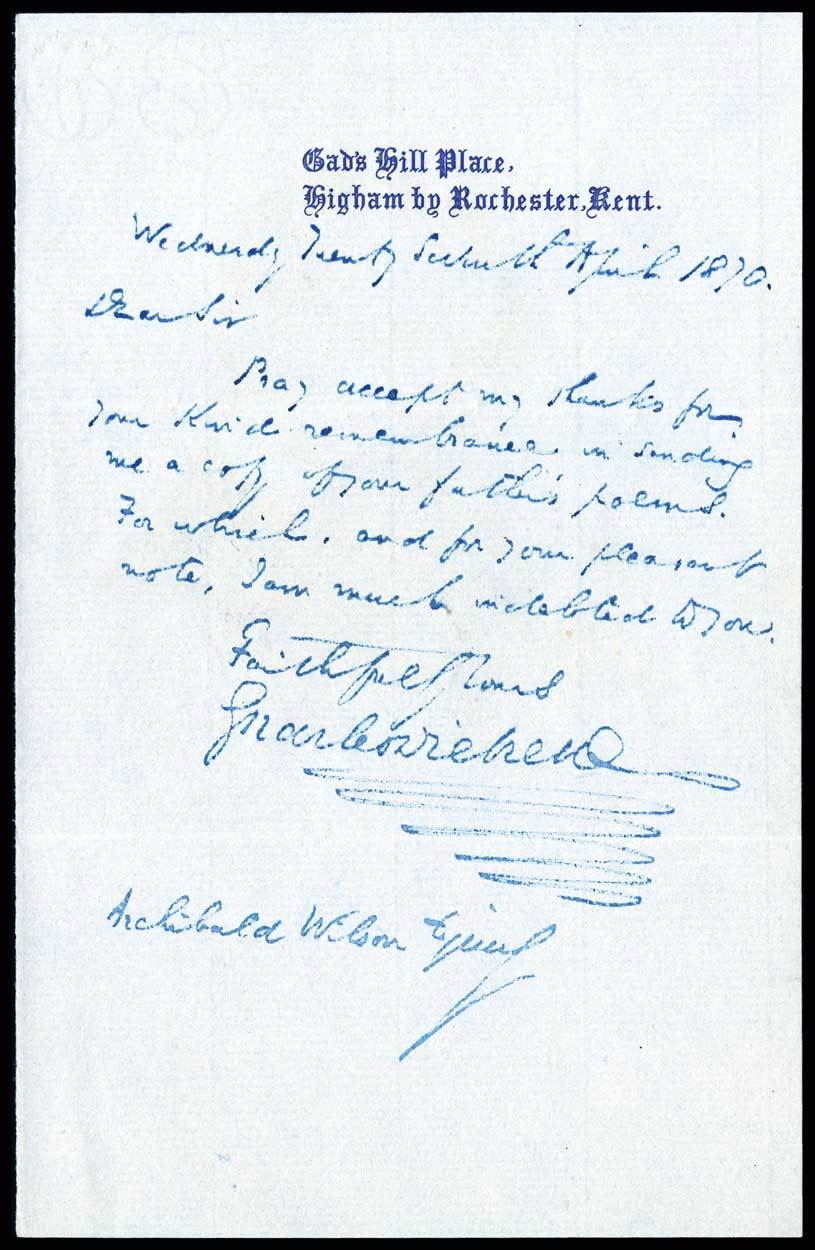 Gad's Hill Place,
Higham by Rochester, Kent.
Wednesday Twenty Seventh April 1870.
Dear Sir
Pray accept my thanks for
your kind remembrance in sending
me a copy of your father's poems.
For which, and for your pleasant
note, I am much indebted to you.
Faithfully Yours
Charles Dickens
Archibald Wilson Esquire